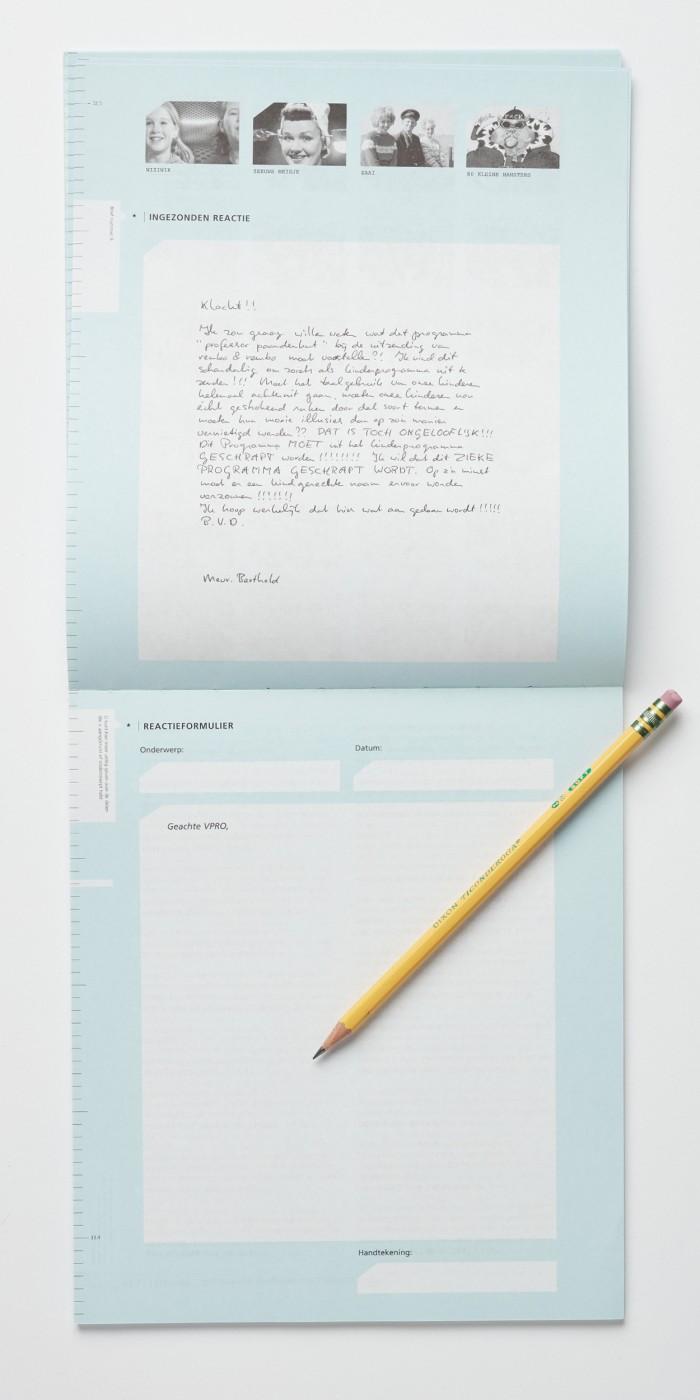 WIZIWIK
ZEEUWS MEISJE
ZAAI
80 KLEINE HAMSTERS
* INGEZONDEN REACTIE
Klacht!!
"Ik zou graag willen weten wat dit programma
"professor poundenbut" bij de uitzending van
rembo & rembo moet voorstellen?! Ik vind dit
schandalig om zoiets als kinderprogramma uit te
zenden!!! Moet het taalgebruik van onze kinderen
helemaal achteruit gaan, moeten onze kinderen nou
écht gestoken raken door dat soort termen en
moeten hun mooie illusies dan op zo'n manier
vernietigd worden?? DAT IS TOCH ONGELOOFLIJK!!!
Dit Programma MOET uit het kinderprogramma
GESCHRAPT worden!!!!!!!! Ik wil dat dit ZIEKE
PROGRAMMA GESCHRAPT WORDT. Op z'n minst
moet er een kindgerechte naam ervoor worden
verzonnen!!!!!!!
Ik hoop werkelijk dat hier wat aan gedaan wordt!!!!!
B.V.D.
Mevr. Berthold
* REACTIEFORMULIER
Onderwerp:
Datum:
Geachte VPRO,
DIXON TICONDEROGA®
SOFT
Handtekening: